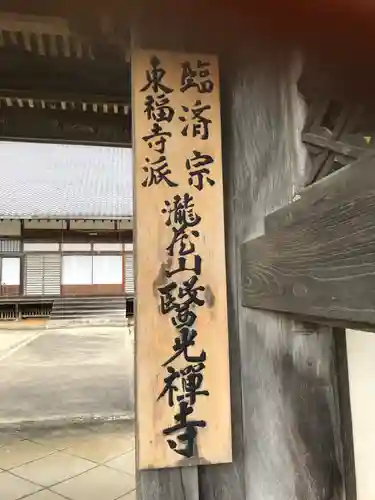 臨済宗
東福寺派
瀧蔵山醫光禅寺